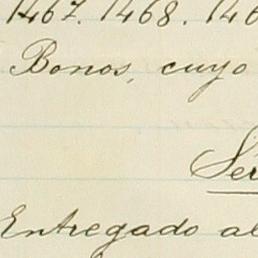 1467. 1468. 146
Bonos, cuyo
Sér
Entregado al